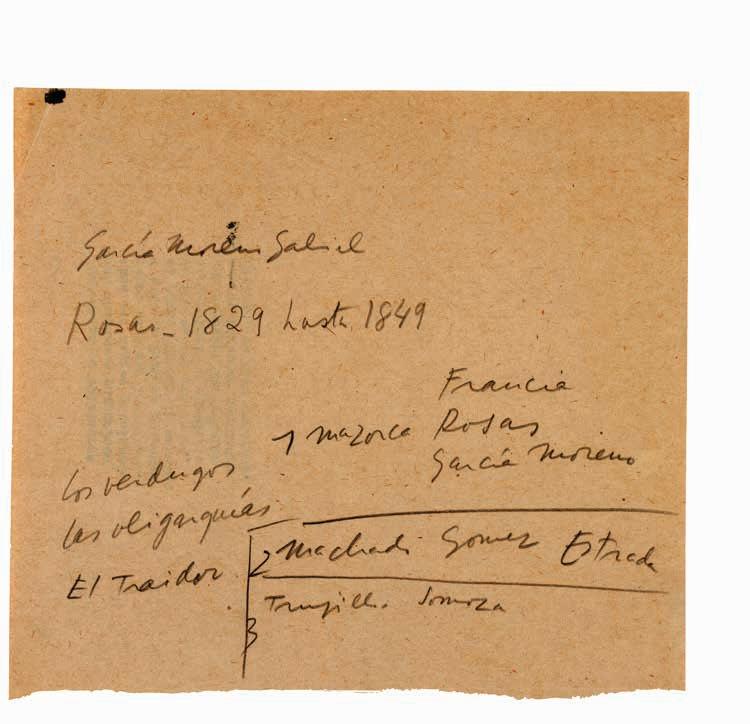 García Moreno Gabriel
Rosas - 1829 hasta 1849
Francia
1 mazorca Rosas
García Moreno
Los verdugos
las oligarquías
El Traidor
2 Machado Gomez Estrada
3 Trujillo Somoza